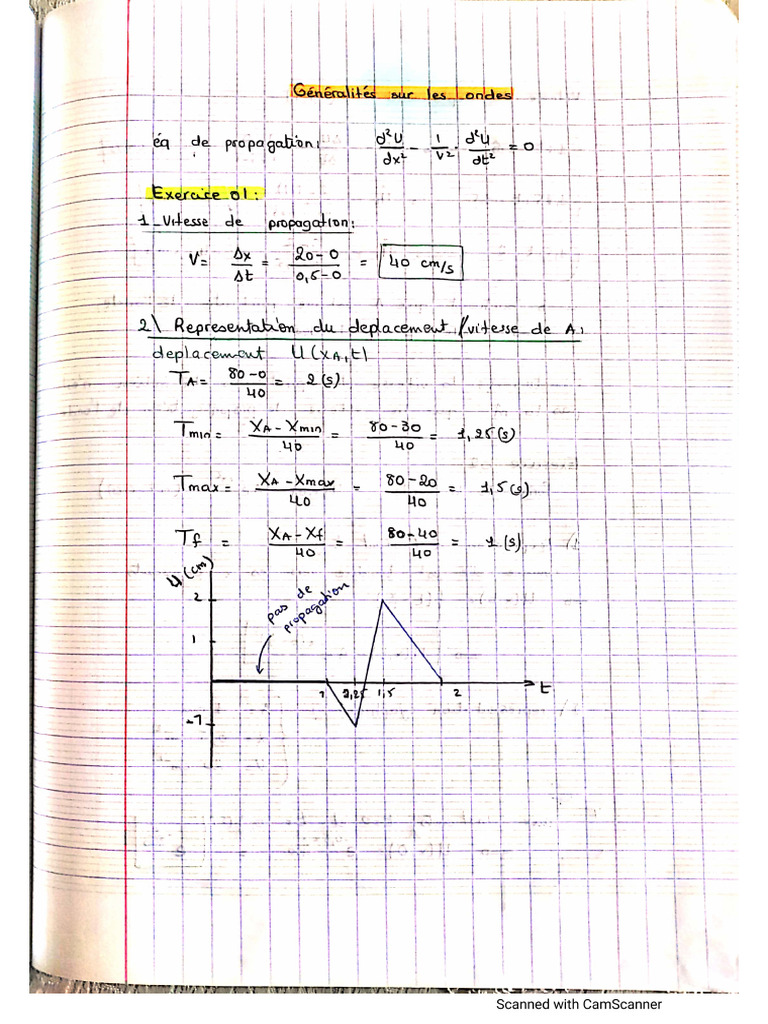 Généralités sur les ondes
éq de propagation: d²U/dx² - 1/V² . d²U/dt² = 0
Exercice 01:
1_Vitesse de propagation:
V = Δx/Δt = 20-0/0,5-0 = 40 cm/s
2\ Representation du deplacement/vitesse de A:
deplacement U(xA,t)
TA = 80-0/40 = 2(s)
Tmin = XA - Xmin/40 = 80-30/40 = 1,25(s)
Tmax = XA - Xmax/40 = 80-20/40 = 1,5(s)
Tf = XA - Xf/40 = 80-40/40 = 1(s)
U(cm)
pas de propagation
2
1
1 1,5 2 t
-1
Scanned with CamScanner